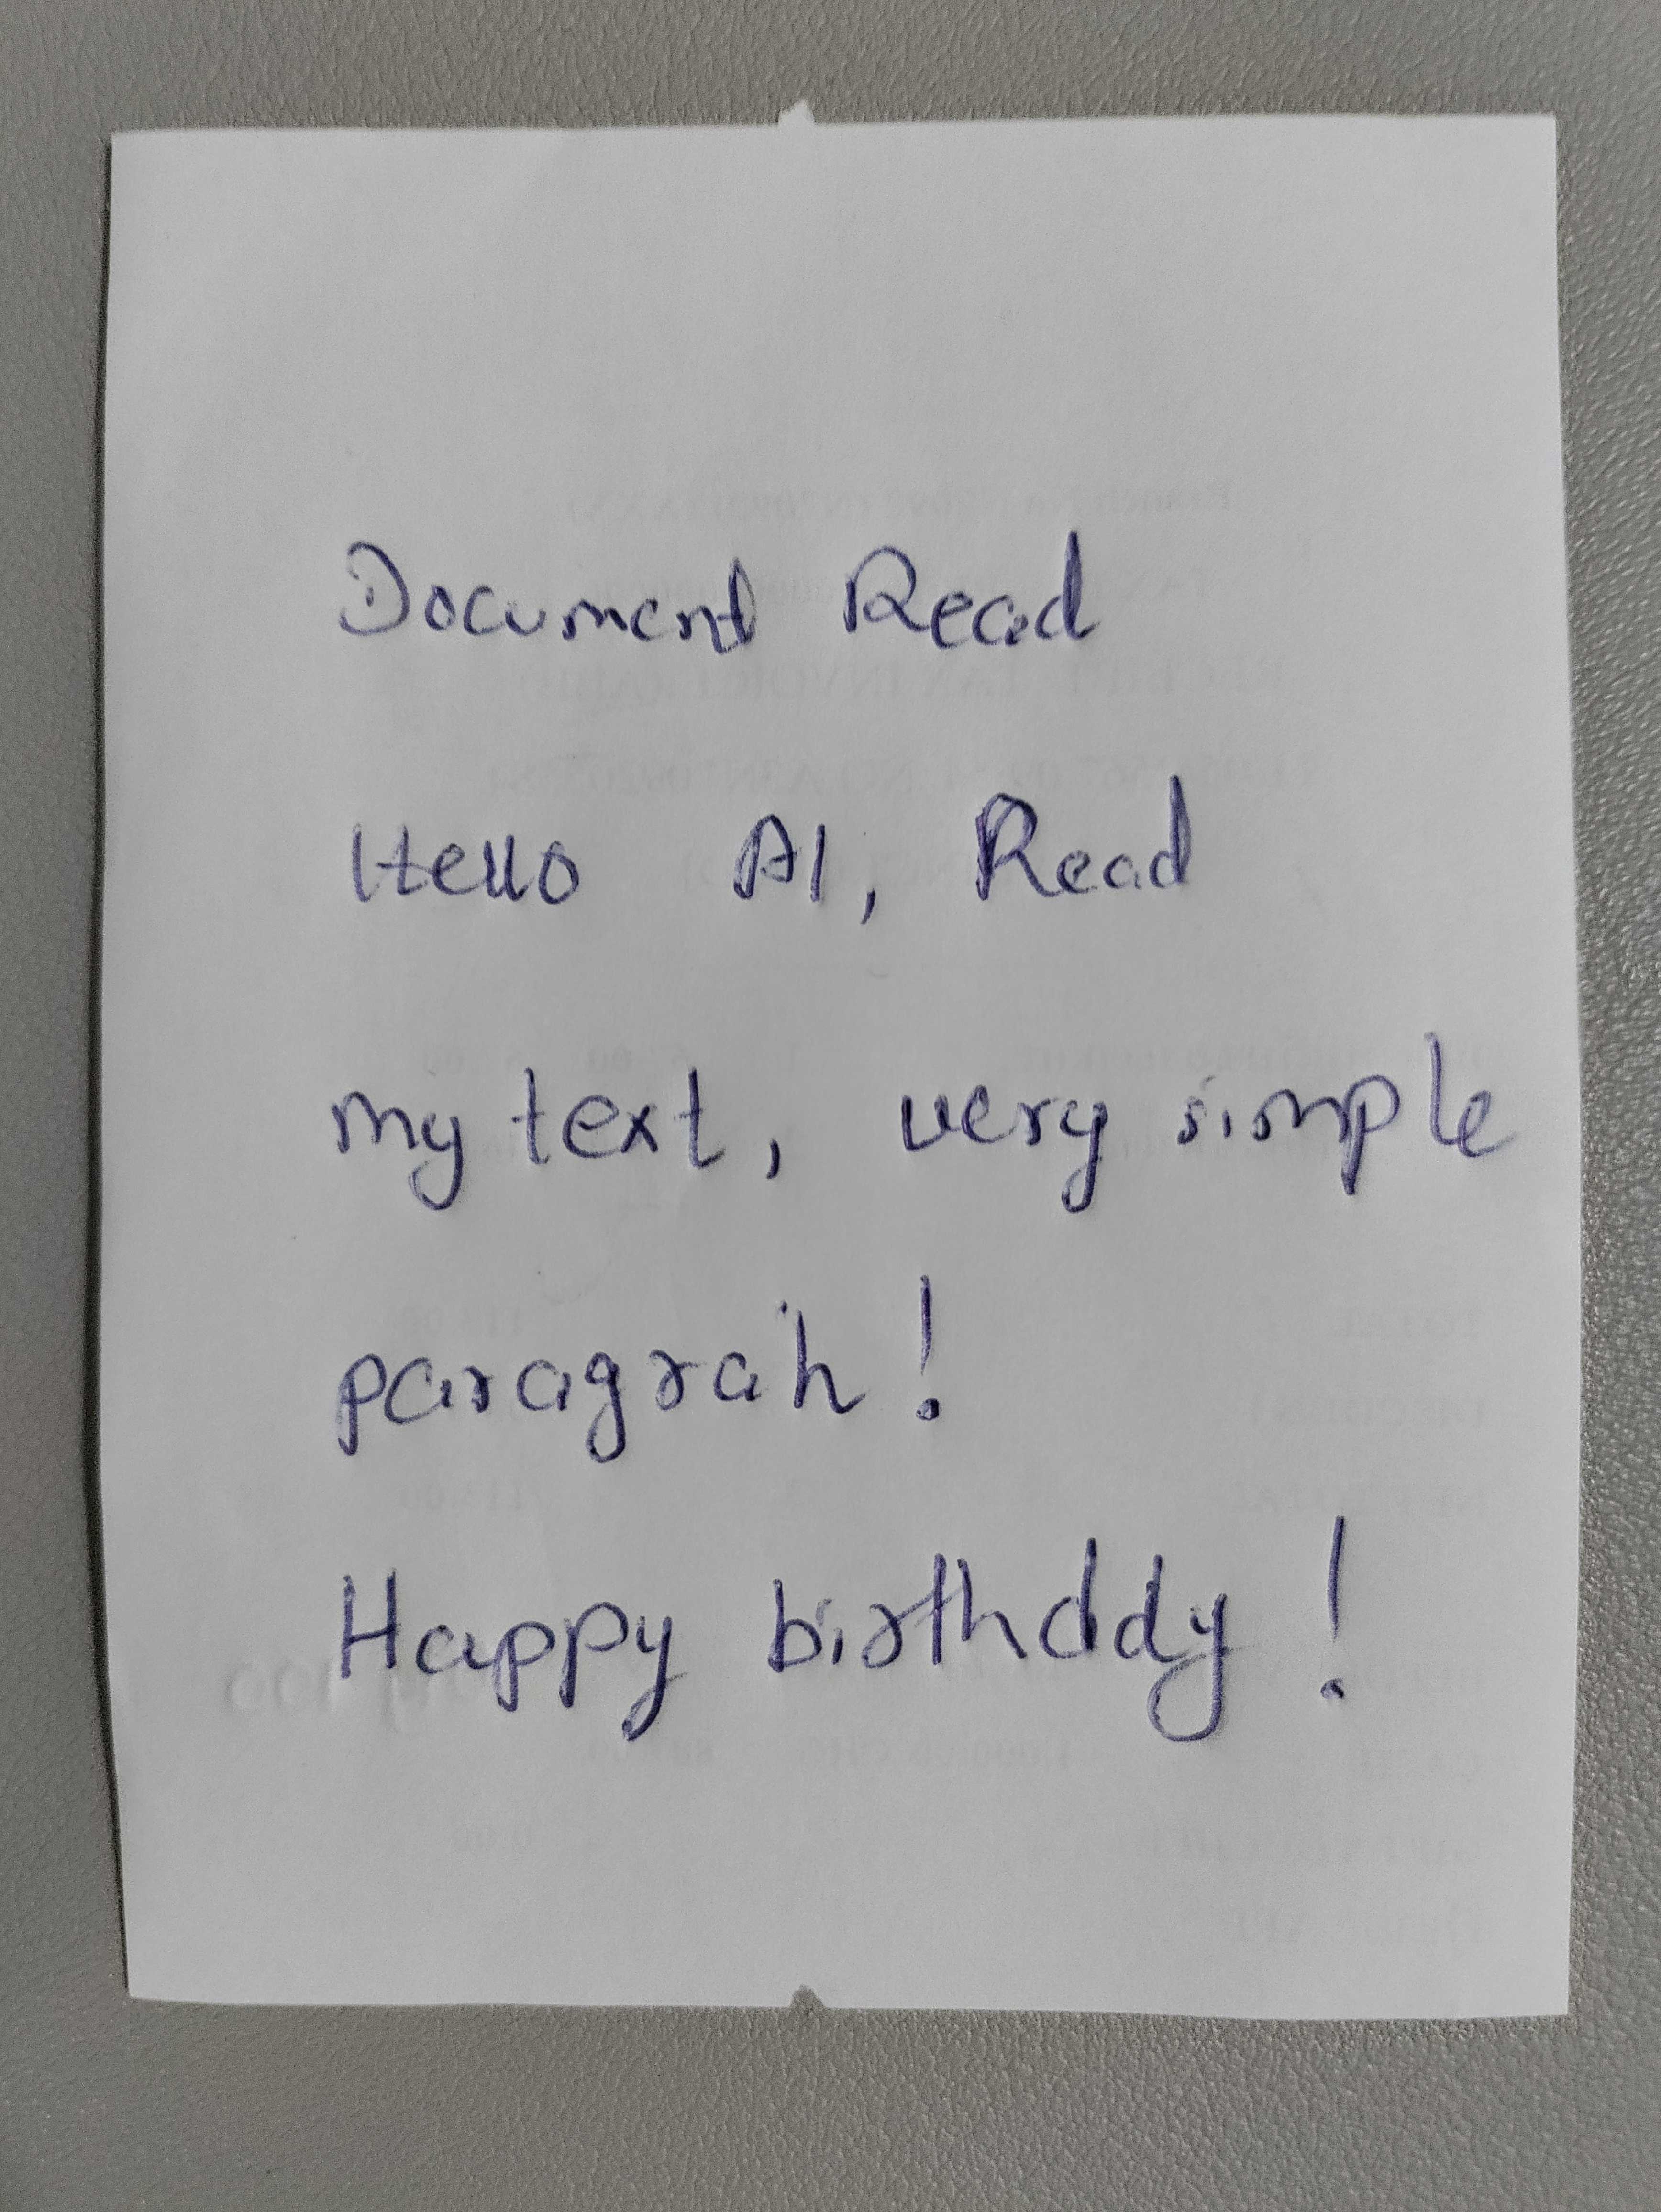 Document Read
Hello AI, Read
my text, very simple
paragrah!
Happy birthddy!